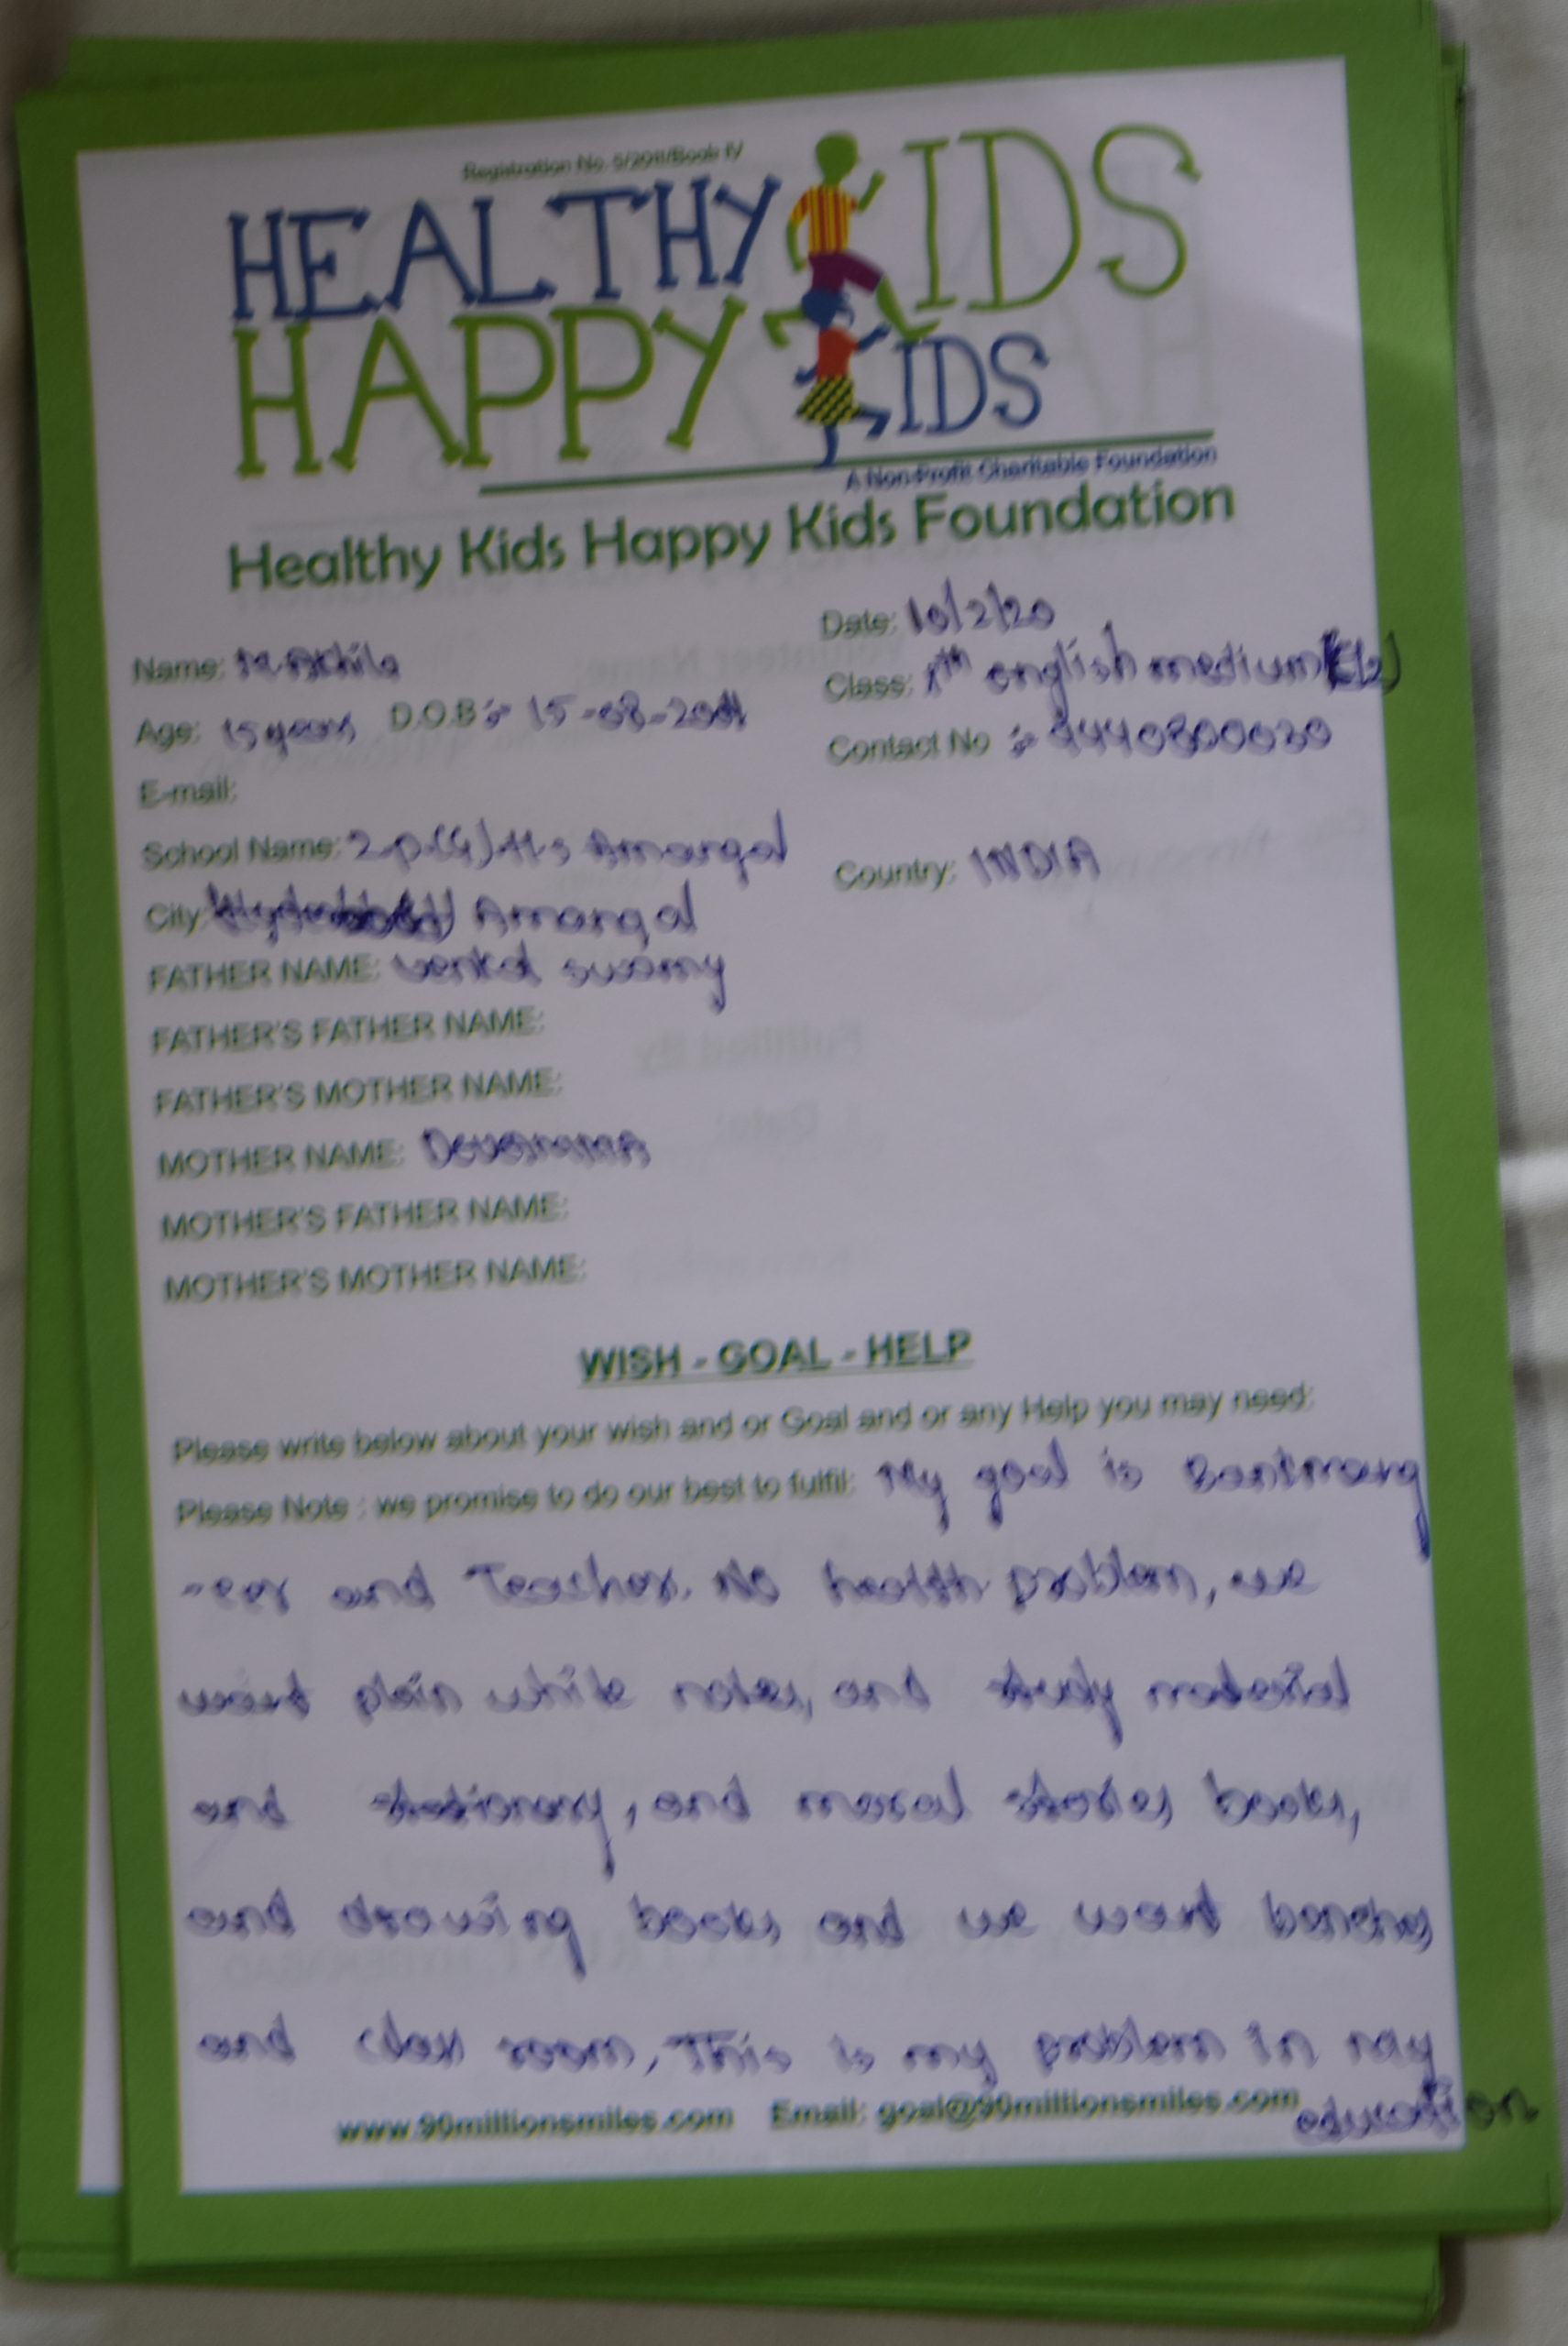 Registration No. 5/2011/Book IV
HEALTHY KIDS
HAPPY KIDS
A Non-Profit Charitable Foundation
Healthy Kids Happy Kids Foundation
Date: 10/2/20
Name: M. Akhila
Class: th english medium
Age: 15 years D.O.B :- 15-08-2004
Contact No :- 9440800030
E-mail:
School Name: Z.P.(G).H.S Amangal
Country: INDIA
City: Amangal
FATHER NAME: venkat swamy
FATHER'S FATHER NAME:
FATHER'S MOTHER NAME:
MOTHER NAME: DEVAMMA
MOTHER'S FATHER NAME:
MOTHER'S MOTHER NAME:
WISH - GOAL - HELP
Please write below about your wish and or Goal and or any Help you may need:
Please Note : we promise to do our best to fulfil: My goal is
and Teacher. No health problem, we
want plain white notes, and study material
and stationary, and moral stories books,
and drawing books and we want benches
and class room, This is my problem in my
education
www.90millionsmiles.com Email: goal@90millionsmiles.com